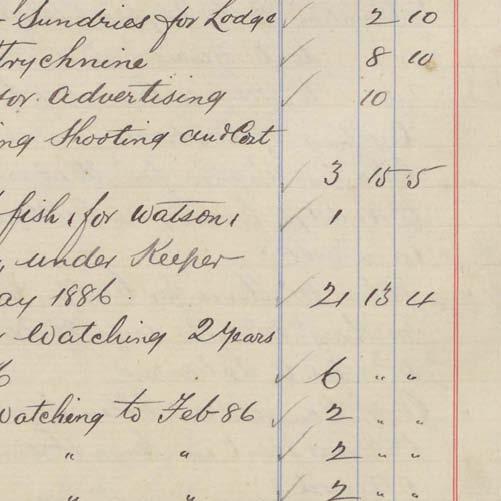 Sundries for Lodge ✓ 2 10
trychnine ✓ 8 10
for advertising ✓ 10
ng Shooting and Cart
✓ 3 15 5
fish, for Watson, ✓ 1
" under Keeper
ay 1886. ✓ 21 13 4
Watching 2 years
6 ✓ 6 " "
Watching to Feb 86 ✓ 2 " "
" " ✓ 2 " "
" " ✓ 2 " "